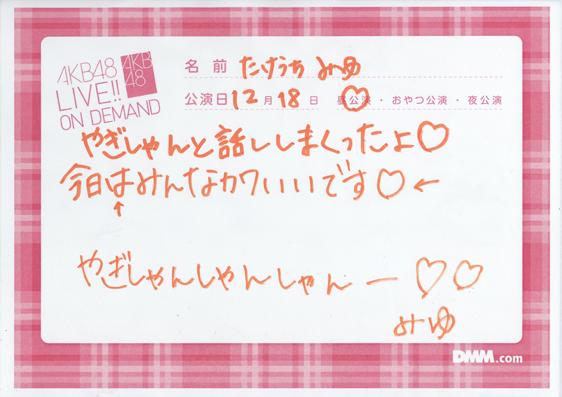 AKB48
LIVE!!
ON DEMAND
AKB
48
名前 たけうち みゆ
公演日 12月18日 昼公演・おやつ公演・夜公演
やぎしゃんと話ししまくったよ♡
今日はみんなカワいいです♡←
↑
やぎしゃんしゃんしゃんー♡♡
みゆ
DMM.com